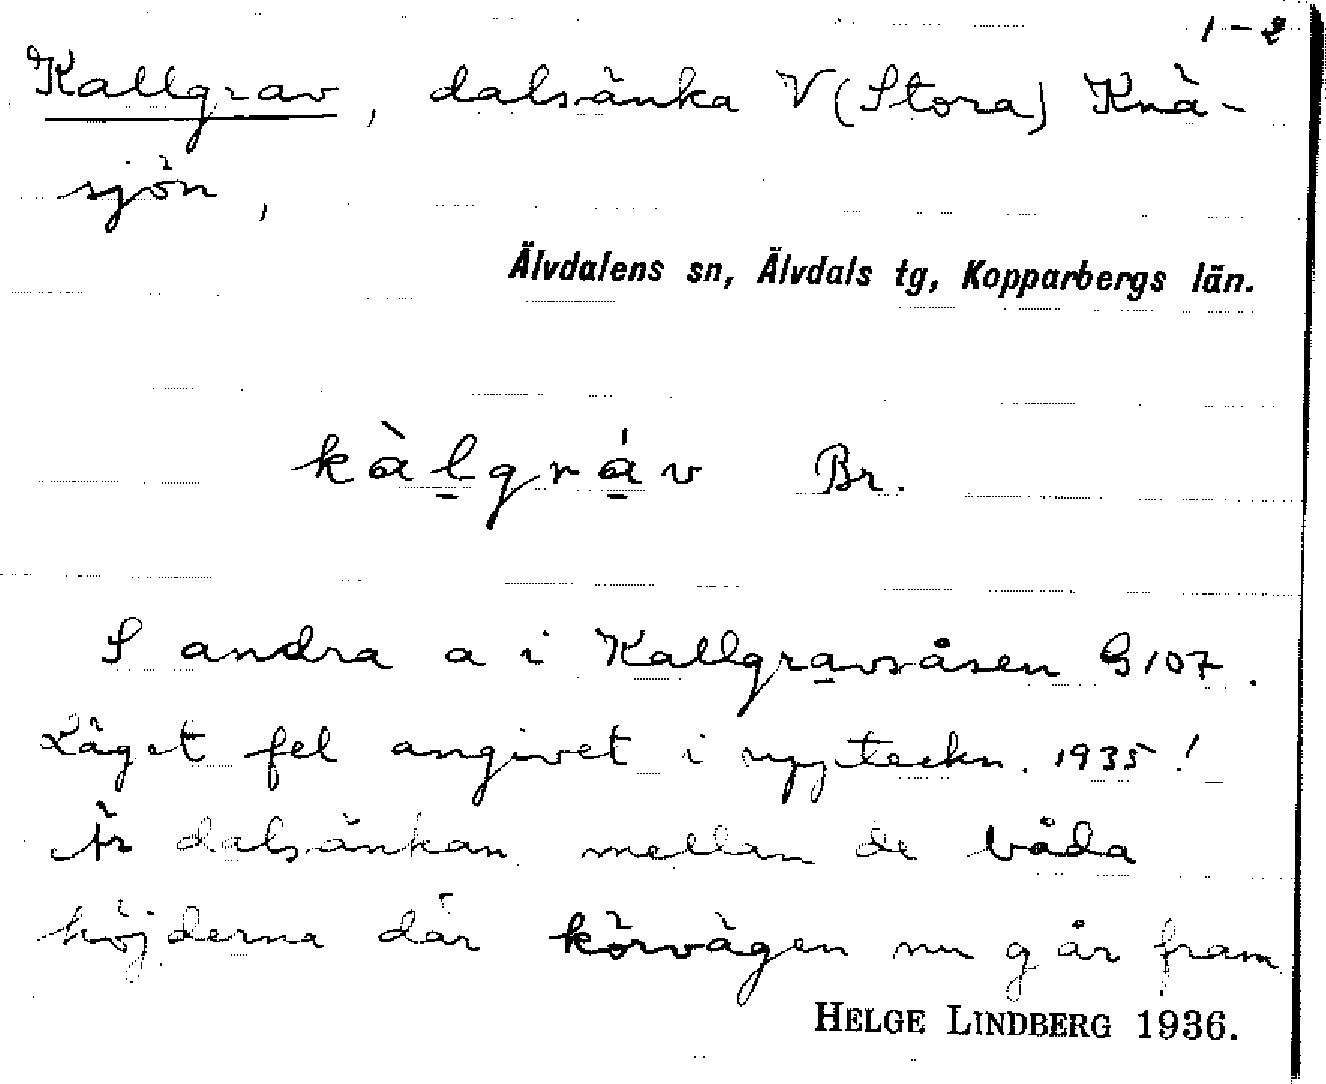 1-2
Kallgrav, dalsänka V (Stora) Knä-
sjön,
Älvdalens sn, Älvdals tg, Kopparbergs län.
kàl̠grá̠v Br.
S andra a i Kallgra̠vsåsen G107.
Läget fel angivet i uppteckn. 1935!
Är dalsänkan mellan de båda
höjderna där körvägen nu går fram
HELGE LINDBERG 1936.